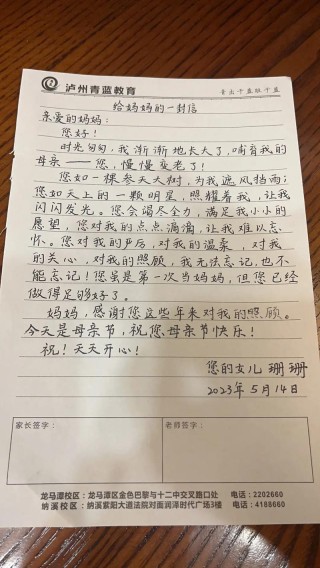 泸州青蓝教育
青出于蓝胜于蓝
给妈妈的一封信
亲爱的妈妈：
您好！
时光匆匆，我渐渐地长大了，哺育我的
母亲——您，慢慢变老了！
您如一棵参天大树，为我遮风挡雨；
您如天上的一颗明星，照耀着我，让我
闪闪发光。您会竭尽全力，满足我小小的
愿望，您对我的点点滴滴，让我难以忘
怀。您对我的严厉，对我的温柔，对我
的关心，对我的照顾，我无法忘记，也不
能忘记！您虽是第一次当妈妈，但您已经
做得足够好了。
妈妈，感谢您这些年来对我的照顾。
今天是母亲节，祝您母亲节快乐！
祝！天天开心！
您的女儿 珊珊
2023年5月14日
家长签字：
老师签字：
龙马潭校区：龙马潭区金色巴黎与十二中交叉路口处 电话：2202660
纳溪校区：纳溪紫阳大道法院对面润泽时代广场3楼 电话：4188660